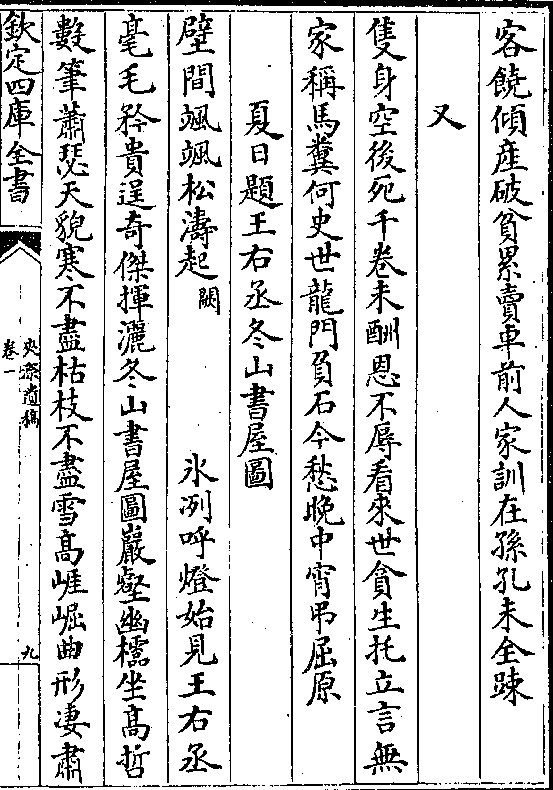 客饒傾産破貧累賣車前人家訓在孫孔未全踈
又
隻身空後死千卷未酬恩不辱看來世貪生托立言無
家稱馬糞何史世龍門負石今愁晚中宵弔屈原
夏日題王右丞冬山書屋圖
壁間颯颯松濤起闕 氷冽呼燈始見王右丞
毫毛矜貴逞奇傑揮灑冬山書屋圖巖壑幽櫺坐高哲
數筆蕭瑟天貌寒不盡枯枝不盡雪高崕崛曲形凄肅
欽定四庫全書
夾漈遺稿
卷一
九